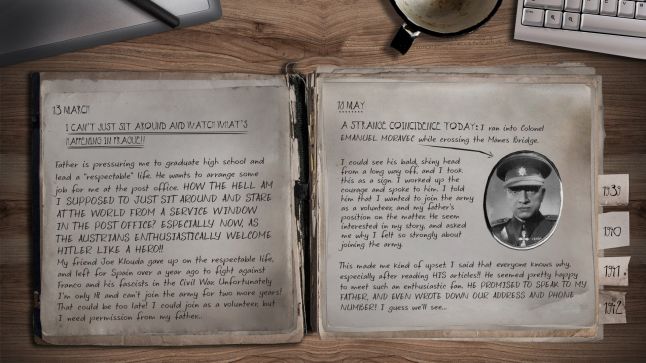 13 MARCH
I CAN'T JUST SIT AROUND AND WATCH WHAT'S
HAPPENING IN PRAGUE!!
Father is pressuring me to graduate high school and
lead a "respectable" life. He wants to arrange some
job for me at the post office. HOW THE HELL AM
I SUPPOSED TO JUST SIT AROUND AND STARE
AT THE WORLD FROM A SERVICE WINDOW
IN THE POST OFFICE? ESPECIALLY NOW, AS
THE AUSTRIANS ENTHUSIASTICALLY WELCOME
HITLER LIKE A HERO!!
My friend Joe Klouda gave up on the respectable life,
and left for Spain over a year ago to fight against
Franco and his fascists in the Civil War. Unfortunately
I'm only 18 and can't join the army for two more years!
That could be too late! I could join as a volunteer, but
I need permission from my father...
10 MAY
A STRANGE COINCIDENCE TODAY: I ran into Colonel
EMANUEL MORAVEC while crossing the Mánes Bridge.
I could see his bald, shiny head
from a long way off, and I took
this as a sign. I worked up the
courage and spoke to him. I told
him that I wanted to join the army
as a volunteer, and my father's
position on the matter. He seem
interested in my story, and asked
me why I felt so strongly about
joining the army.
This made me kind of upset. I said that everyone knows why,
especially after reading HIS articles!! He seemed pretty happy
to meet such an enthusiastic fan. HE PROMISED TO SPEAK TO MY
FATHER, AND EVEN WROTE DOWN OUR ADDRESS AND PHONE
NUMBER!! I guess we'll see...
1939
1940
1941
1942